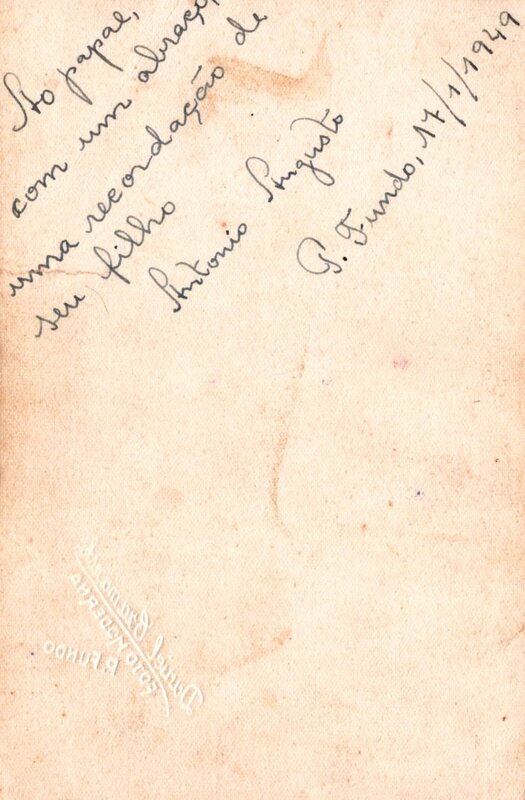 Ao papae,
com um abraço,
uma recordação de
seu filho
Antonio Augusto
P. Fundo, 17/1/1949
Daniel
FOTO MODERNA
P. FUNDO